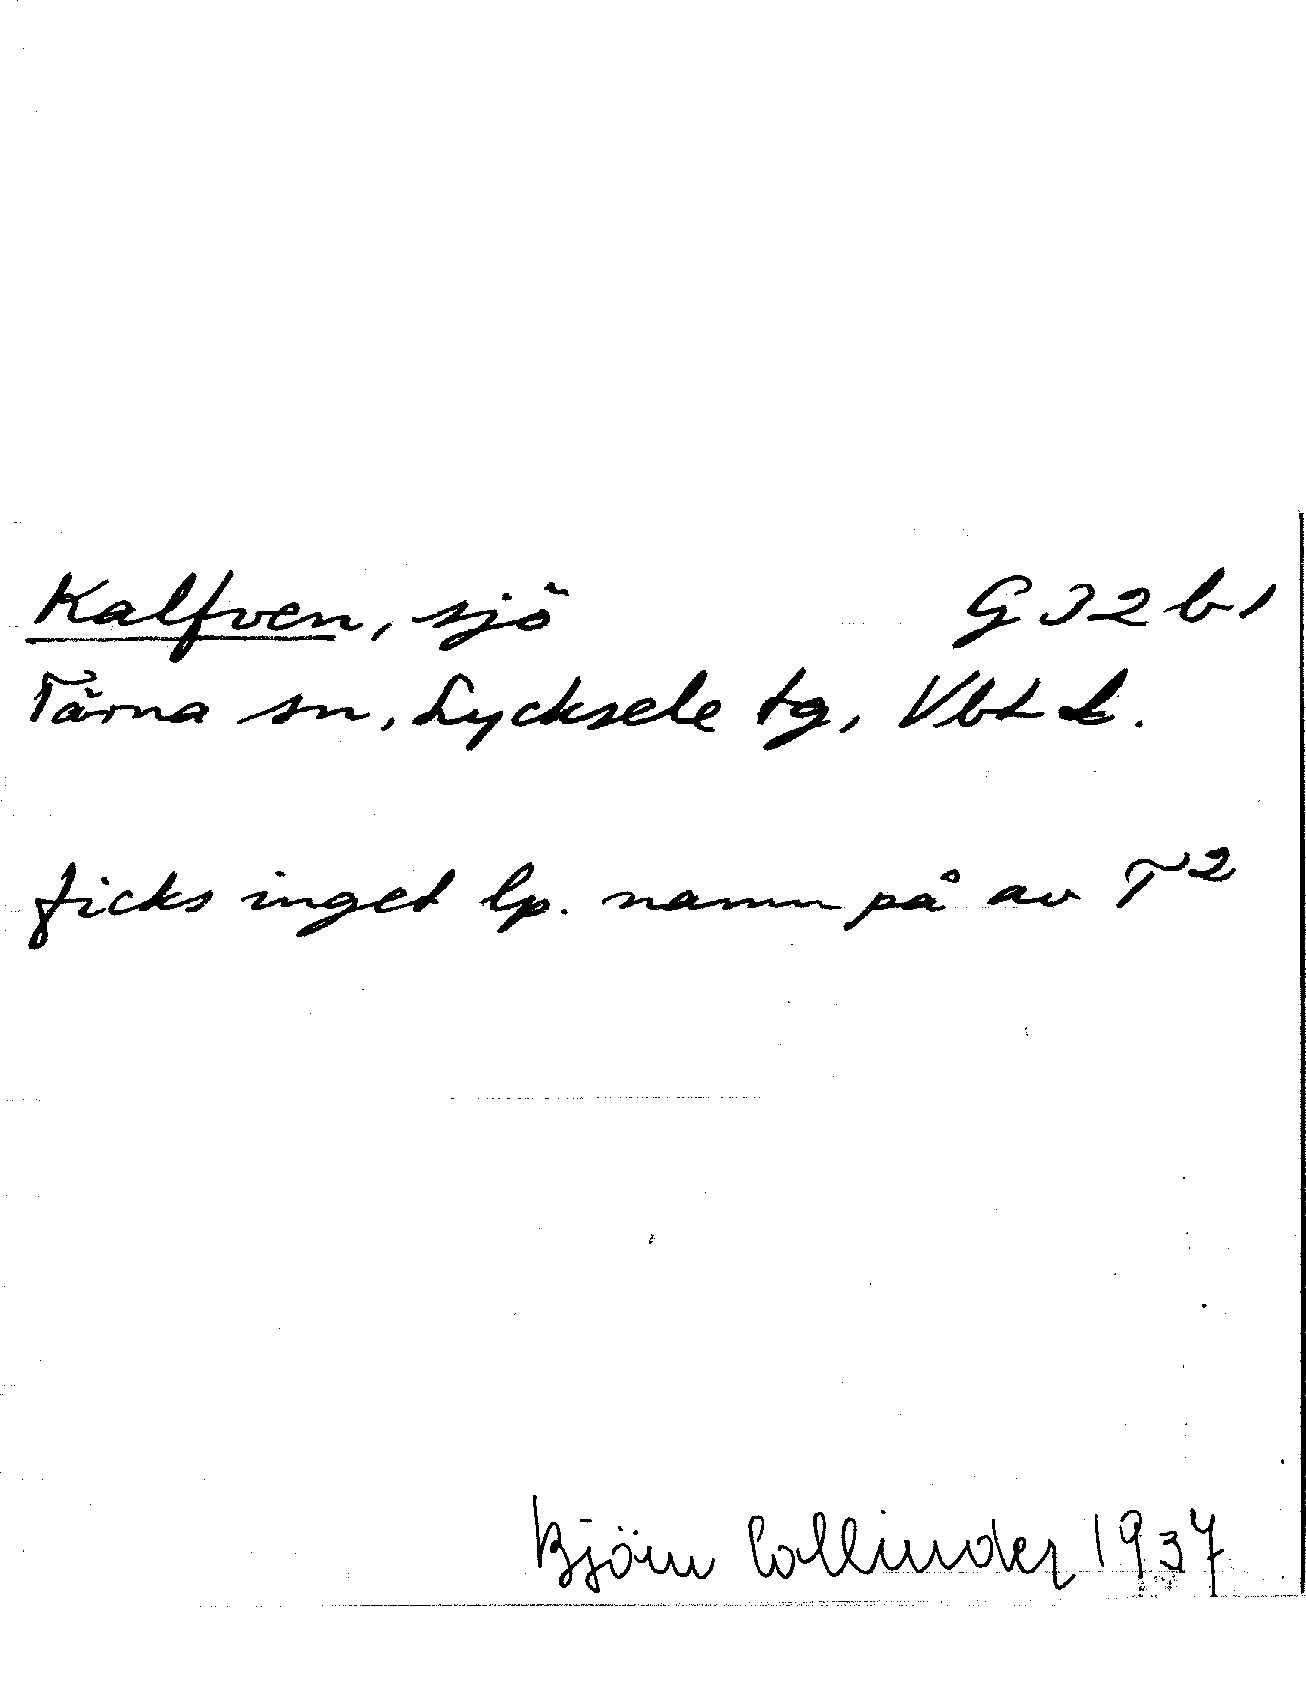 Kalfven, sjö G 32 b 1
Tärna sn, Lycksele tg, Vbt l.
ficks inget lp. namn på av T²
Björn Collinder 1937